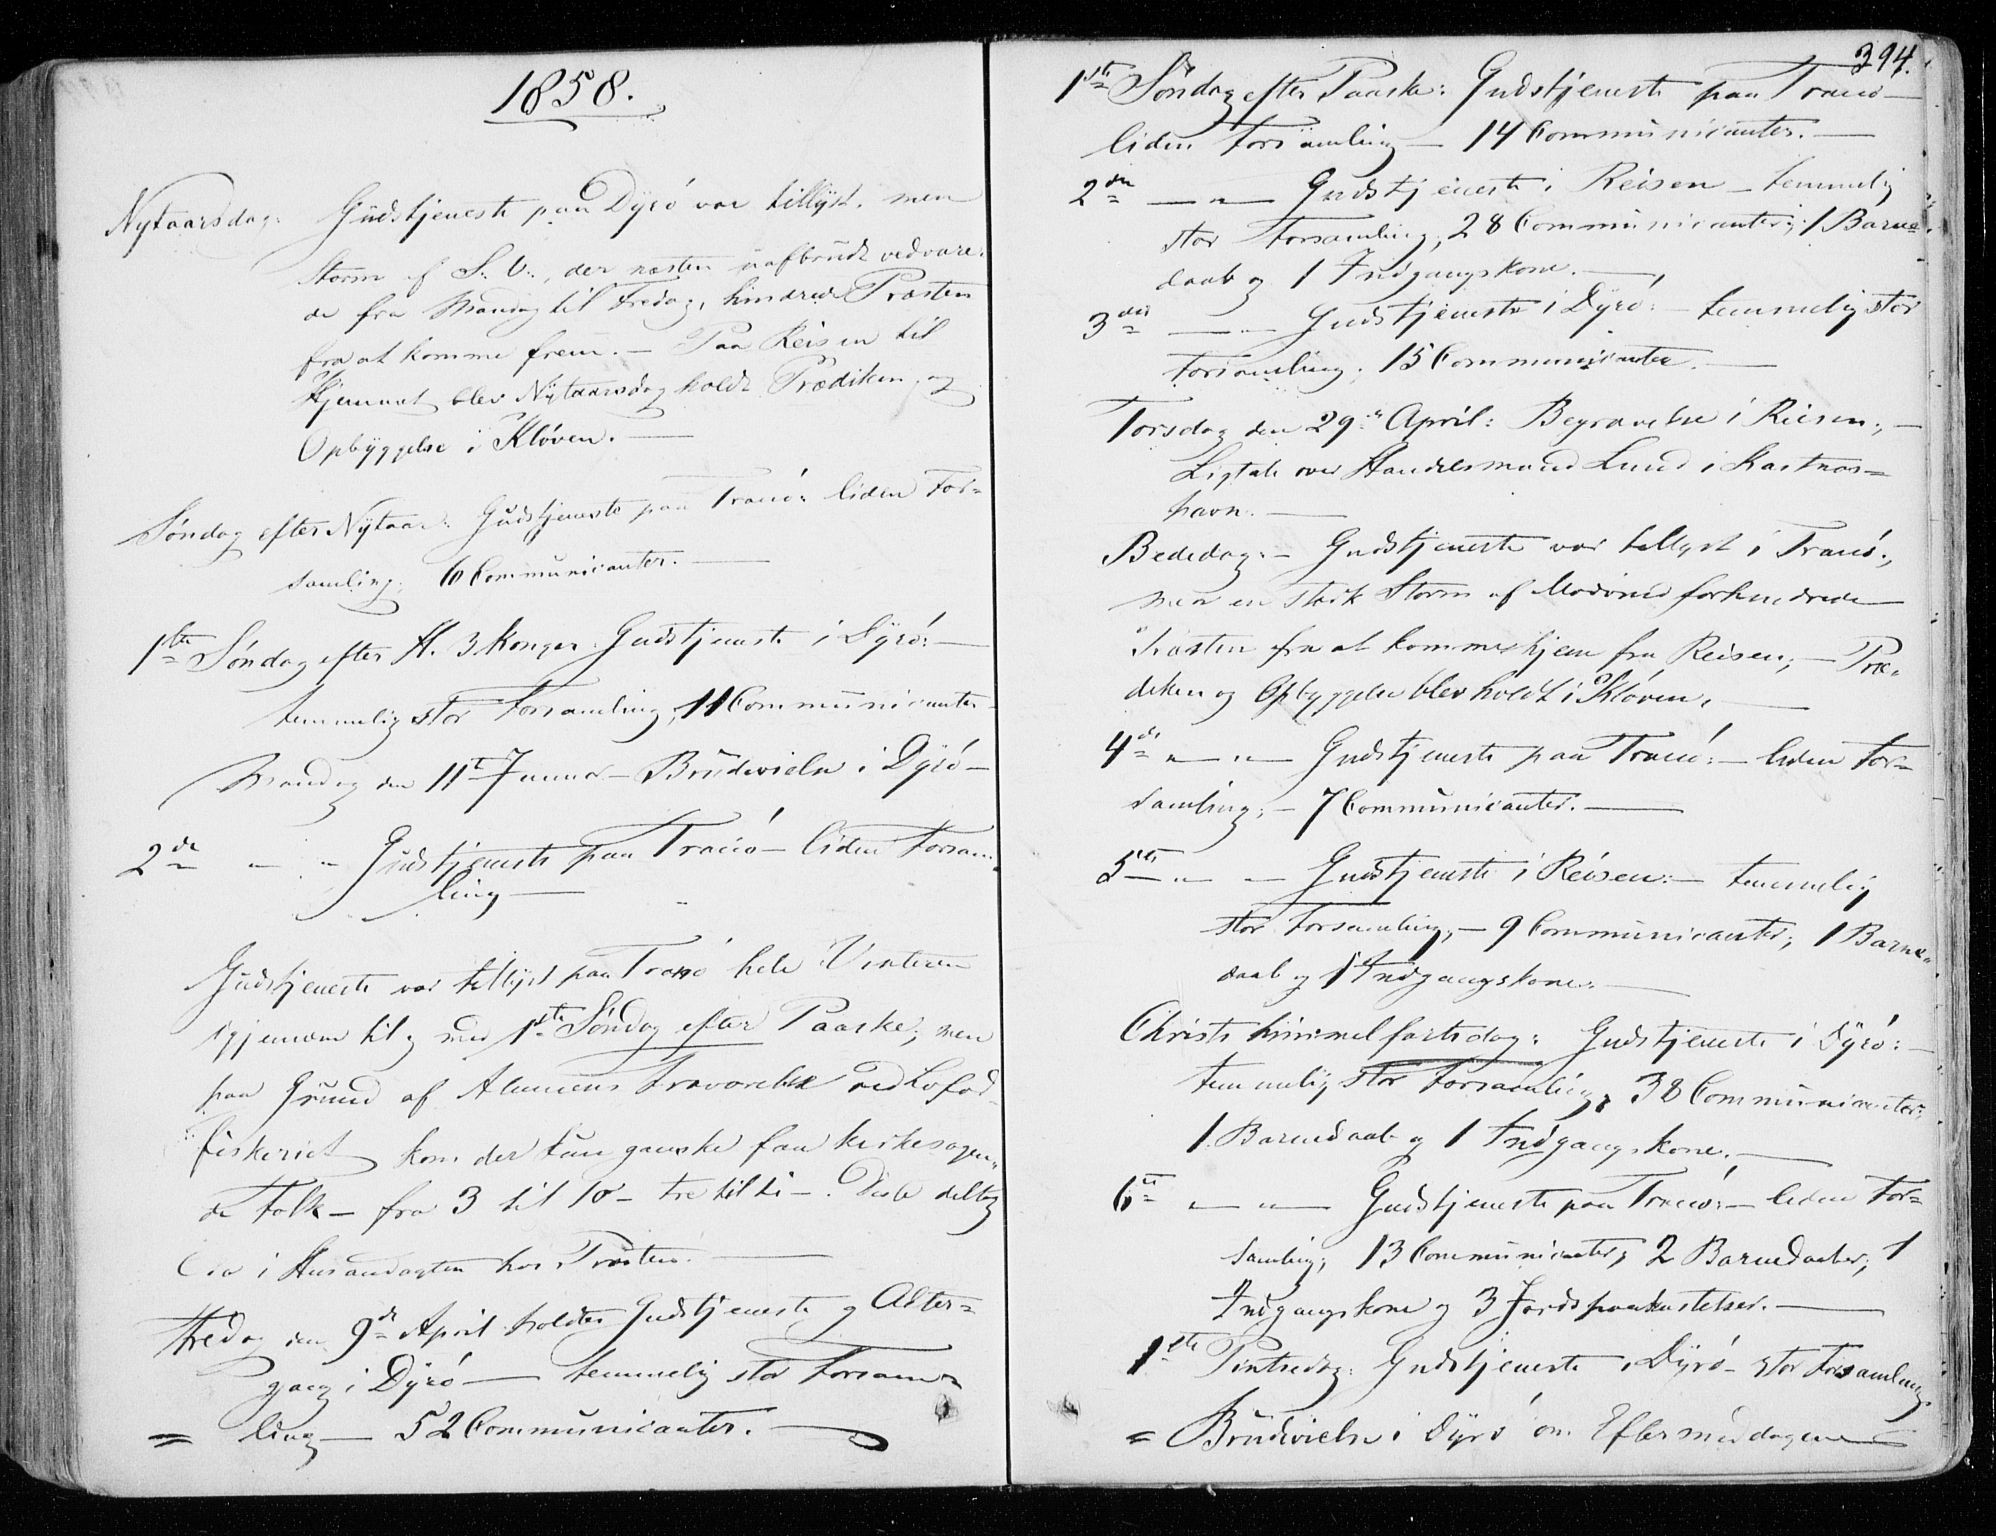 1858.
Nytaarsdag: Gudstjeneste paa Dyrö var tillyst, men
Storm af S.V., der næsten uafbrudt vedvare-
de fra Mandag til Fredag, hindrede Præsten
fra at komme frem. — Paa Reisen til
Hjemmet blev Nytaarsdag holdt Prædiken og
Opbyggelse i Klöven. —
Söndag efter Nytaar: Gudstjeneste paa Tranö: liden For-
samling; 6 Communicanter. —
1ste Söndag efter H. 3 Konger: Gudstjeneste i Dyrö: —
temmelig stor Forsamling, 11 Communicanter
Mandag den 11te Januar — Brudevielse i Dyrö —
2de " " Gudstjeneste paa Tranö — liden Forsam-
ling —
Gudstjeneste var tillyst paa Tranö hele Vinteren
igjennem til og med 1ste Söndag efter Paaske; men
paa Grund af Almuens Fraværelse ved Lofod-
fiskeriet kom der kun ganske faa kirkesögen-
de Folk — fra 3 til 10 — tre til ti —. Disse deltog
da i Husandagten hos Præsten. —
Fredag den 9de April holdtes Gudstjeneste og Alter-
gang i Dyrö — temmelig stor Forsam-
ling — 52 Communicanter. —
394.
1ste Söndag efter Paaske: Gudstjeneste paa Tranö —
liden Forsamling — 14 Communicanter. —
2den — " — Gudstjeneste i Reisen — temmelig
stor Forsamling, 28 Communicanter; 1 Barne-
daab og 1 Indgangskone. —
3die — " — Gudstjeneste i Dyrö: — temmelig stor
Forsamling; 15 Communicanter. —
Torsdag den 29de April: Begravelse i Reisen; —
Ligtale over Handelsmand Lund i Kastnæs-
havn. —
Bededag: — Gudstjeneste var tillyst i Tranö;
men en stærk Storm af Modvind forhindrede
Præsten fra at komme hjem fra Reisen; — Præ-
diken og Opbyggelse blev holdt i Klöven. —
4de " — " — Gudstjeneste paa Tranö: — liden For-
samling; — 7 Communicanter. —
5te — " — Gudstjeneste i Reisen: — temmelig
stor Forsamling, — 9 Communicanter; 1 Barne-
daab og 1 Indgangskone. —
Christi himmelfartsdag: Gudstjeneste i Dyrö: —
temmelig stor Forsamling; 38 Communicanter;
1 Barnedaab og 1 Indgangskone. —
6te — " — Gudstjeneste paa Tranö: — liden For-
samling; 13 Communicanter; 2 Barnedaaber; 1
Indgangskone og 3 Jordspaakastelser. —
1ste Pintsedag: Gudstjeneste i Dyrö — stor Forsamling
= Brudevielse i Dyrö om Eftermiddagen —